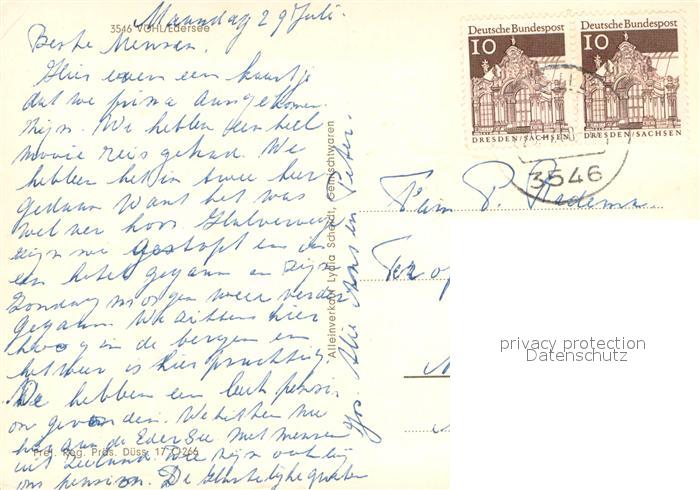 Maandag 29 Juli.
3546 VÖHL/Edersee
Beste Mensen,
Hier even een kaartje
dat we prima aangekomen
zijn. We hebben een heel
mooie reis gehad. We
hebben het in twee keer
gedaan want het was
wel ver hoor. Halverwege
zijn we gestopt en in
een hotel gegaan en zijn
Zondag morgen weer verder
gegaan. We zitten hier
hoog in de bergen en
het weer is hier prachtig.
We hebben een leuk pension
gevonden. We zitten nu
hier aan de Eder See. Met mensen
uit Zeeland. We zijn
ons pension. De hartelijke groeten
Jos. Alie Ans en Peter.
Prei. Reg. Präs. Düss. 17
Alleinverkauf Lydia Scheldt, Gemischtwaren
Deutsche Bundespost
10
DRESDEN/SACHSEN
Deutsche Bundespost
10
DRESDEN/SACHSEN
3546
Fam P.
op
privacy protection
Datenschutz